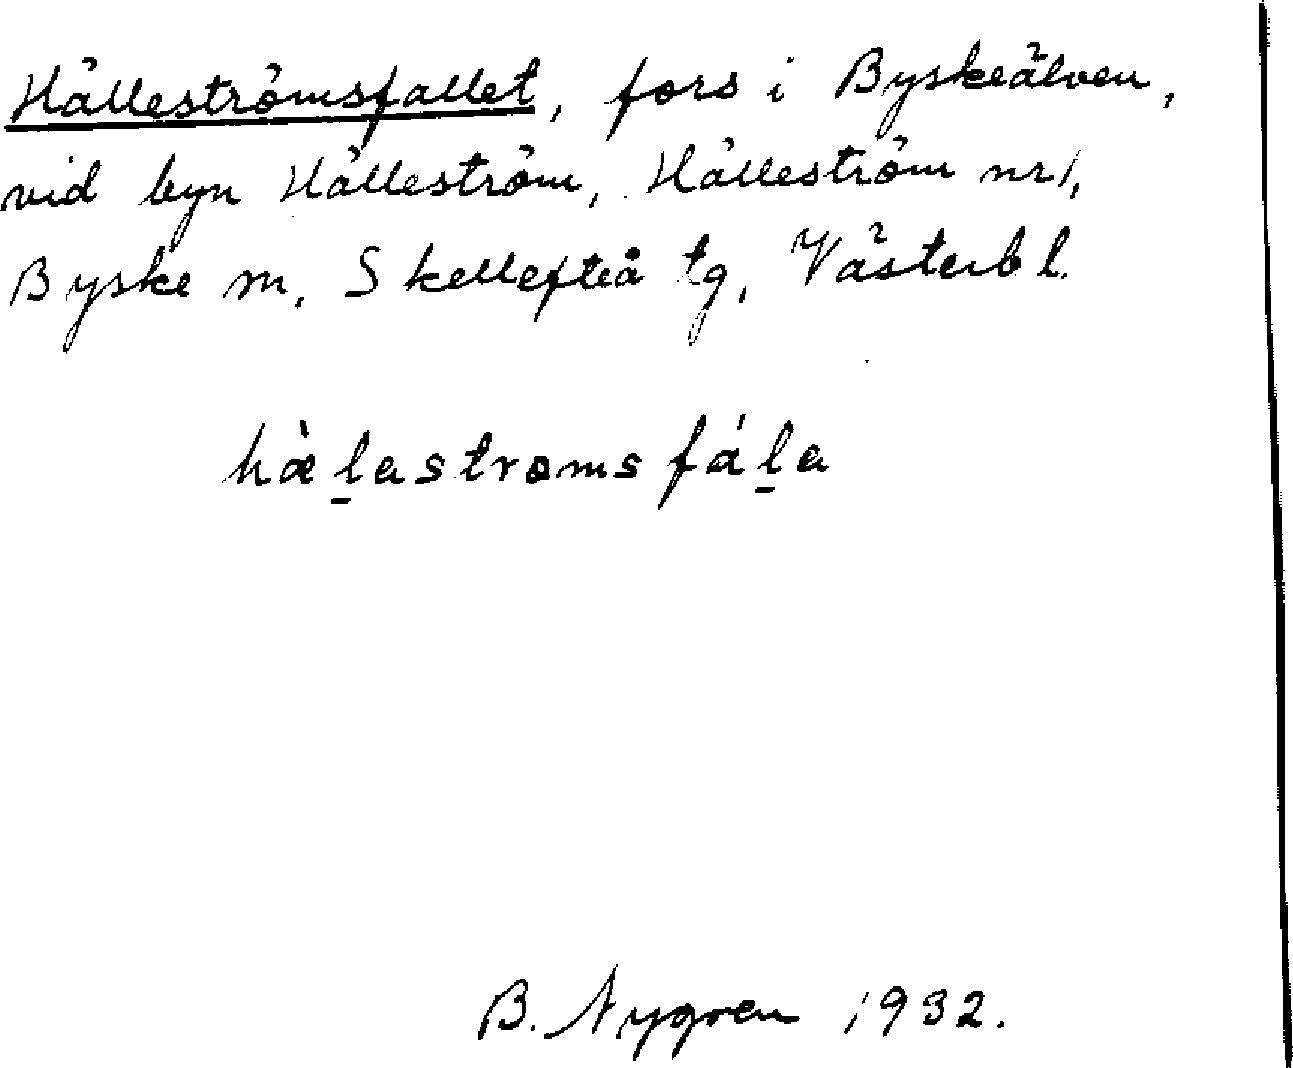 Hälleströmsfallet, fors i Byskeälven,
vid byn Hälleström, Hälleström nr 1,
Byske sn, Skellefteå tg, Västerb l.
hæ̀l̲astrømsfál̲a
B. Nygren 1932.